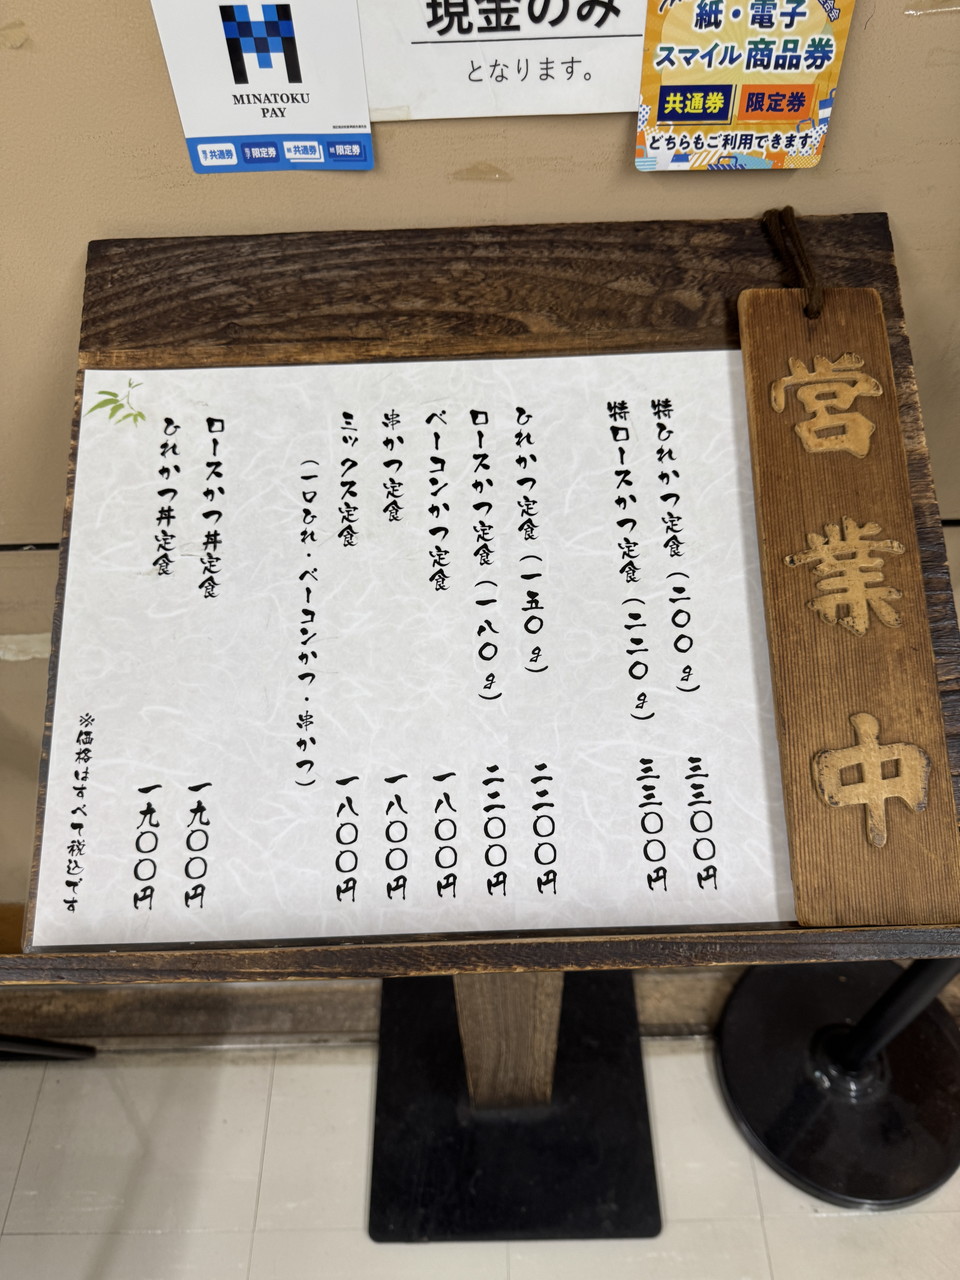 MINATOKU
PAY
共通券
限定券
共通券
限定券
現金のみ
となります。
紙・電子
スマイル商品券
共通券
限定券
どちらもご利用できます
営業中
特ひれかつ定食（二〇〇g） 三三〇〇円
特ロースかつ定食（二二〇g） 三三〇〇円
ひれかつ定食（一五〇g） 二二〇〇円
ロースかつ定食（一八〇g） 二二〇〇円
ベーコンかつ定食 一八〇〇円
串かつ定食 一八〇〇円
ミックス定食 一八〇〇円
（一口ひれ・ベーコンかつ・串かつ）
ロースかつ丼定食 一九〇〇円
ひれかつ丼定食 一九〇〇円
※価格はすべて税込です